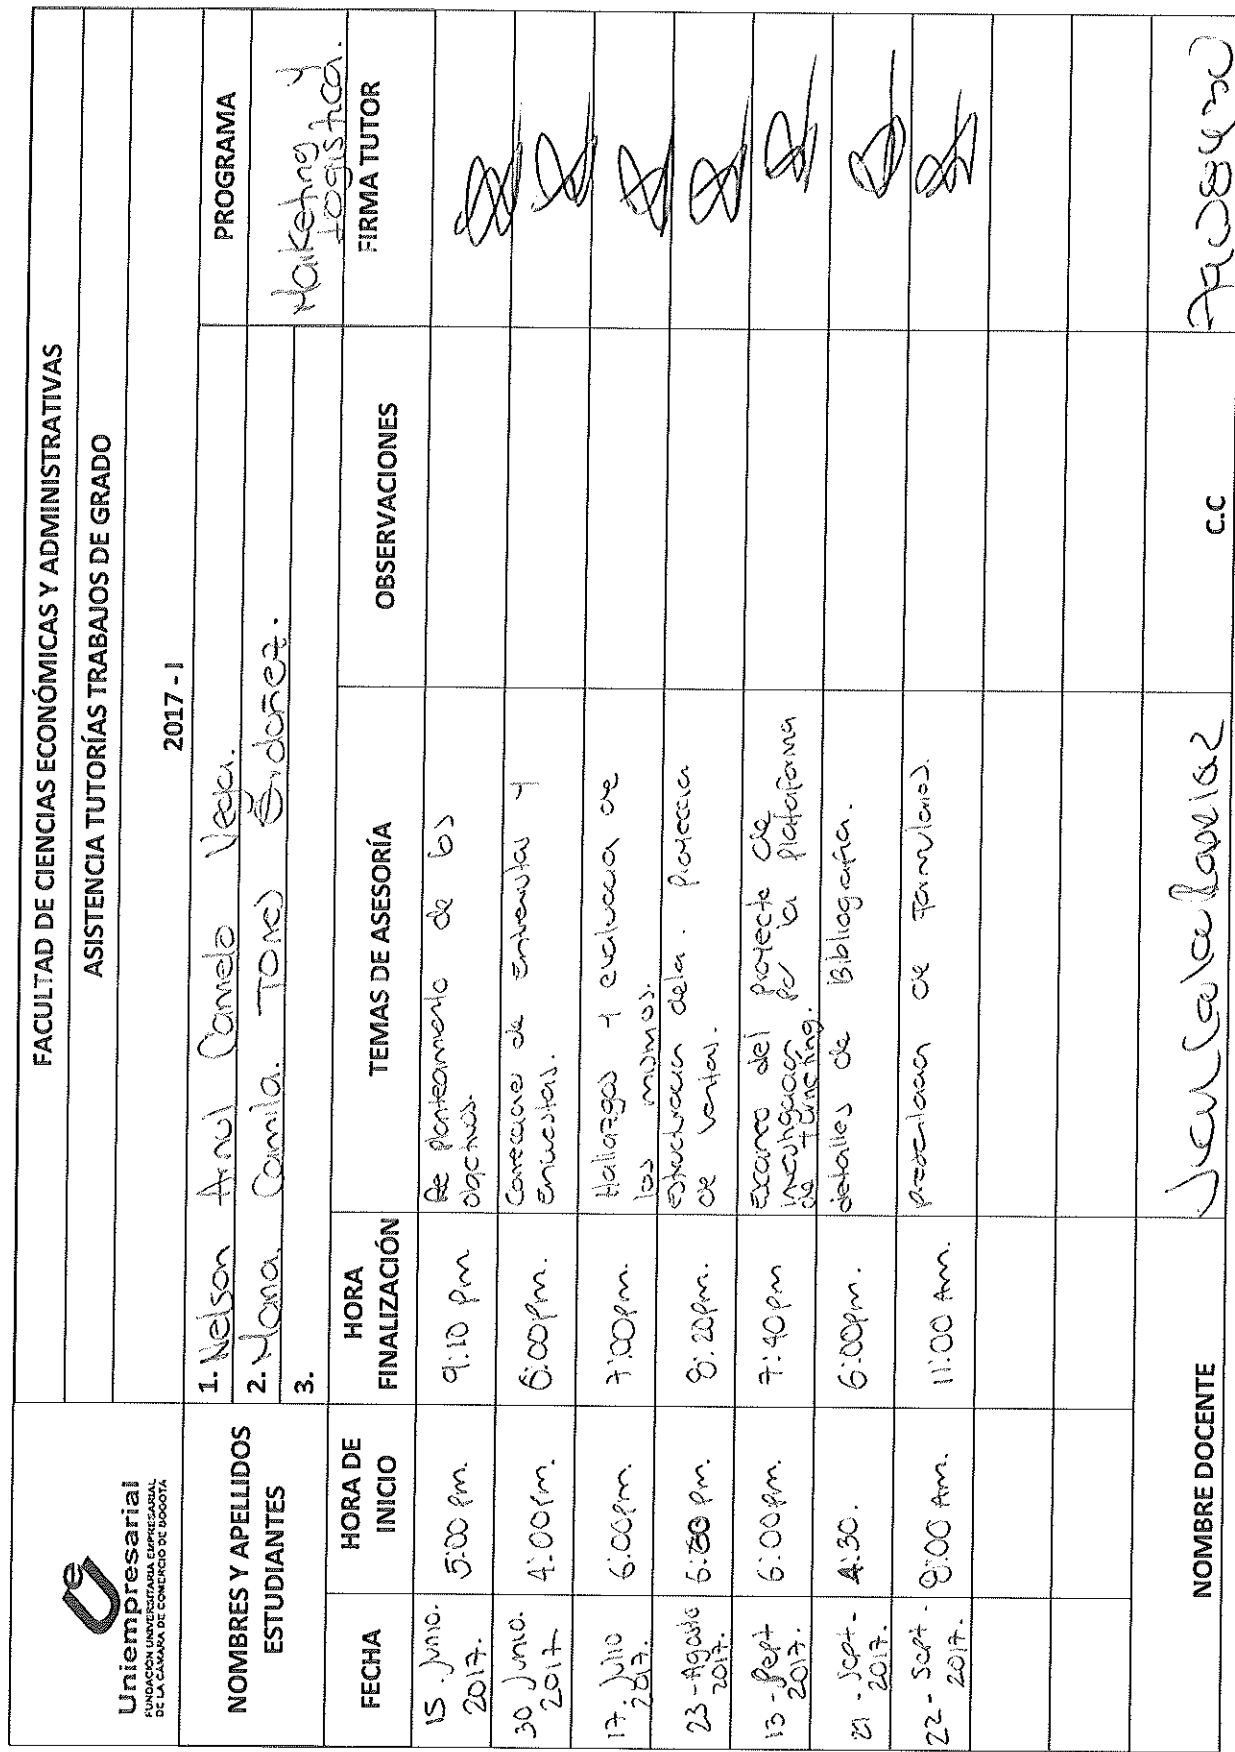 Uniempresarial
FUNDACIÓN UNIVERSITARIA EMPRESARIAL
DE LA CÁMARA DE COMERCIO DE BOGOTÁ
FACULTAD DE CIENCIAS ECONÓMICAS Y ADMINISTRATIVAS
ASISTENCIA TUTORÍAS TRABAJOS DE GRADO
2017 - I
NOMBRES Y APELLIDOS
ESTUDIANTES
1. Nelson Arnul Camelo Vega.
2. Maria Camila Torres
3.
PROGRAMA
Marketing y
Logistica.
FECHA
HORA DE
INICIO
HORA
FINALIZACIÓN
TEMAS DE ASESORÍA
OBSERVACIONES
FIRMA TUTOR
15. Junio.
2017.
5:00 pm.
9:10 pm
Re planteamiento de los
objetivos.
30 Junio.
2017
4:00 pm.
6:00 pm.
de Entrevistas y
Encuestas.
17. Julio
2017.
6:00 pm.
7:00 pm.
Hallazgos y evaluacion de
los mismos.
23 - Agosto
2017.
pm.
8:20 pm.
Estructuracion
de ventas.
13 - Sept
2017.
6:00 pm.
7:40 pm
del proyecto de
investigacion por la plataforma
de
21 - Sept -
2017.
4:30.
6:00 pm.
detalles de Bibliografia.
22 - Sept -
2017.
8:00 Am.
11:00 Am.
presentacion de Formularios.
NOMBRE DOCENTE
C.C